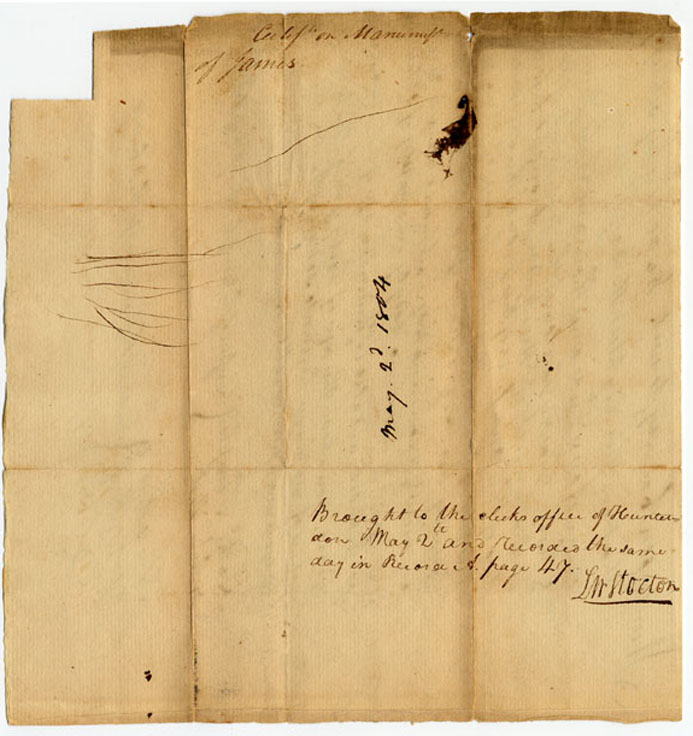 Certif.te on Manumisn
of James.
May. 2d. 1804
Brought to the clerks office of Hunter-
don May 2th and Recorded the same
day in Record page 47.
LW Stocton